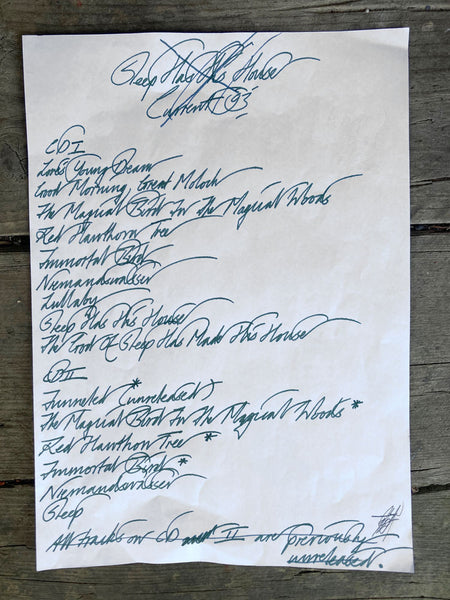 Sleep Has His House
Current 93
CD I
Love's Young Dream
Good Morning, Great Moloch
The Magical Bird In The Magical Woods
Red Hawthorn Tree
Immortal Bird
Niemandswasser
Lullaby
Sleep Has His House
The God Of Sleep Has Made His House
CD II
Funneled * (unreleased)
The Magical Bird In The Magical Woods *
Red Hawthorn Tree *
Immortal Bird *
Niemandswasser
Sleep
All tracks on CD II are previously
unreleased.